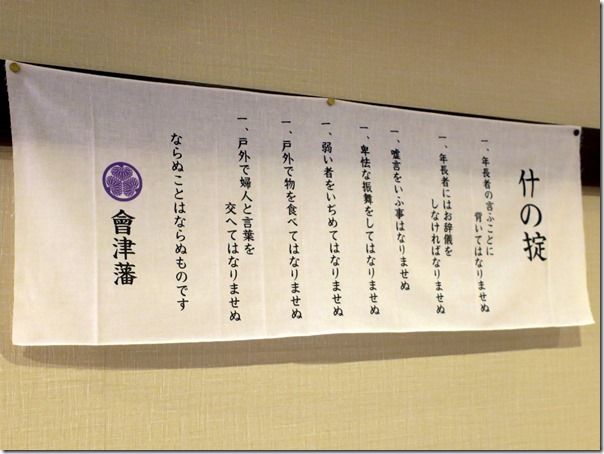 什の掟
一、年長者の言ふことに
背いてはなりませぬ
一、年長者にはお辞儀を
しなければなりませぬ
一、嘘言をいふ事はなりませぬ
一、卑怯な振舞をしてはなりませぬ
一、弱い者をいぢめてはなりませぬ
一、戸外で物を食べてはなりませぬ
一、戸外で婦人と言葉を
交へてはなりませぬ
ならぬことはならぬものです
會津藩